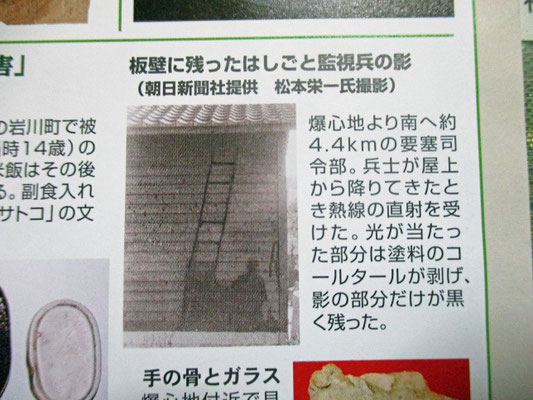 害」
板壁に残ったはしごと監視兵の影
(朝日新聞社提供 松本栄一氏撮影)
の岩川町で被
時14歳)の
米飯はその後
る。副食入れ
サトコ」の文
爆心地より南へ約
4.4kmの要塞司
令部。兵士が屋上
から降りてきたと
き熱線の直射を受
けた。光が当たっ
た部分は塗料のコ
ールタールが剥げ、
影の部分だけが黒
く残った。
手の骨とガラス
爆心地付近で見